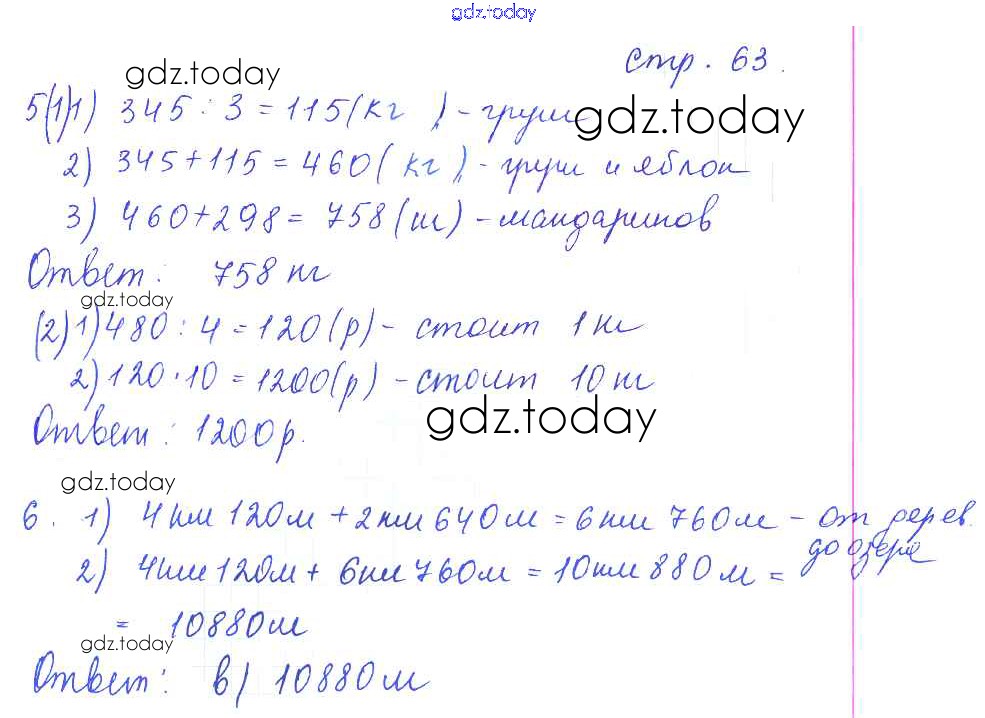 gdz.today
стр. 63.
gdz.today
5(1)1) 345 : 3 = 115(кг) - груш
gdz.today
2) 345 + 115 = 460(кг) - груш и яблок
3) 460 + 298 = 758(кг) - мандаринов
Ответ: 758 кг
gdz.today
(2)1) 480 : 4 = 120(р) - стоит 1 кг
2) 120 · 10 = 1200(р) - стоит 10 кг
gdz.today
Ответ: 1200р.
gdz.today
6. 1) 4км 120м + 2км 640м = 6км 760м - от дерев.
до озера
2) 4км 120м + 6км 760м = 10км 880м =
= 10880м
gdz.today
Ответ: в) 10880м